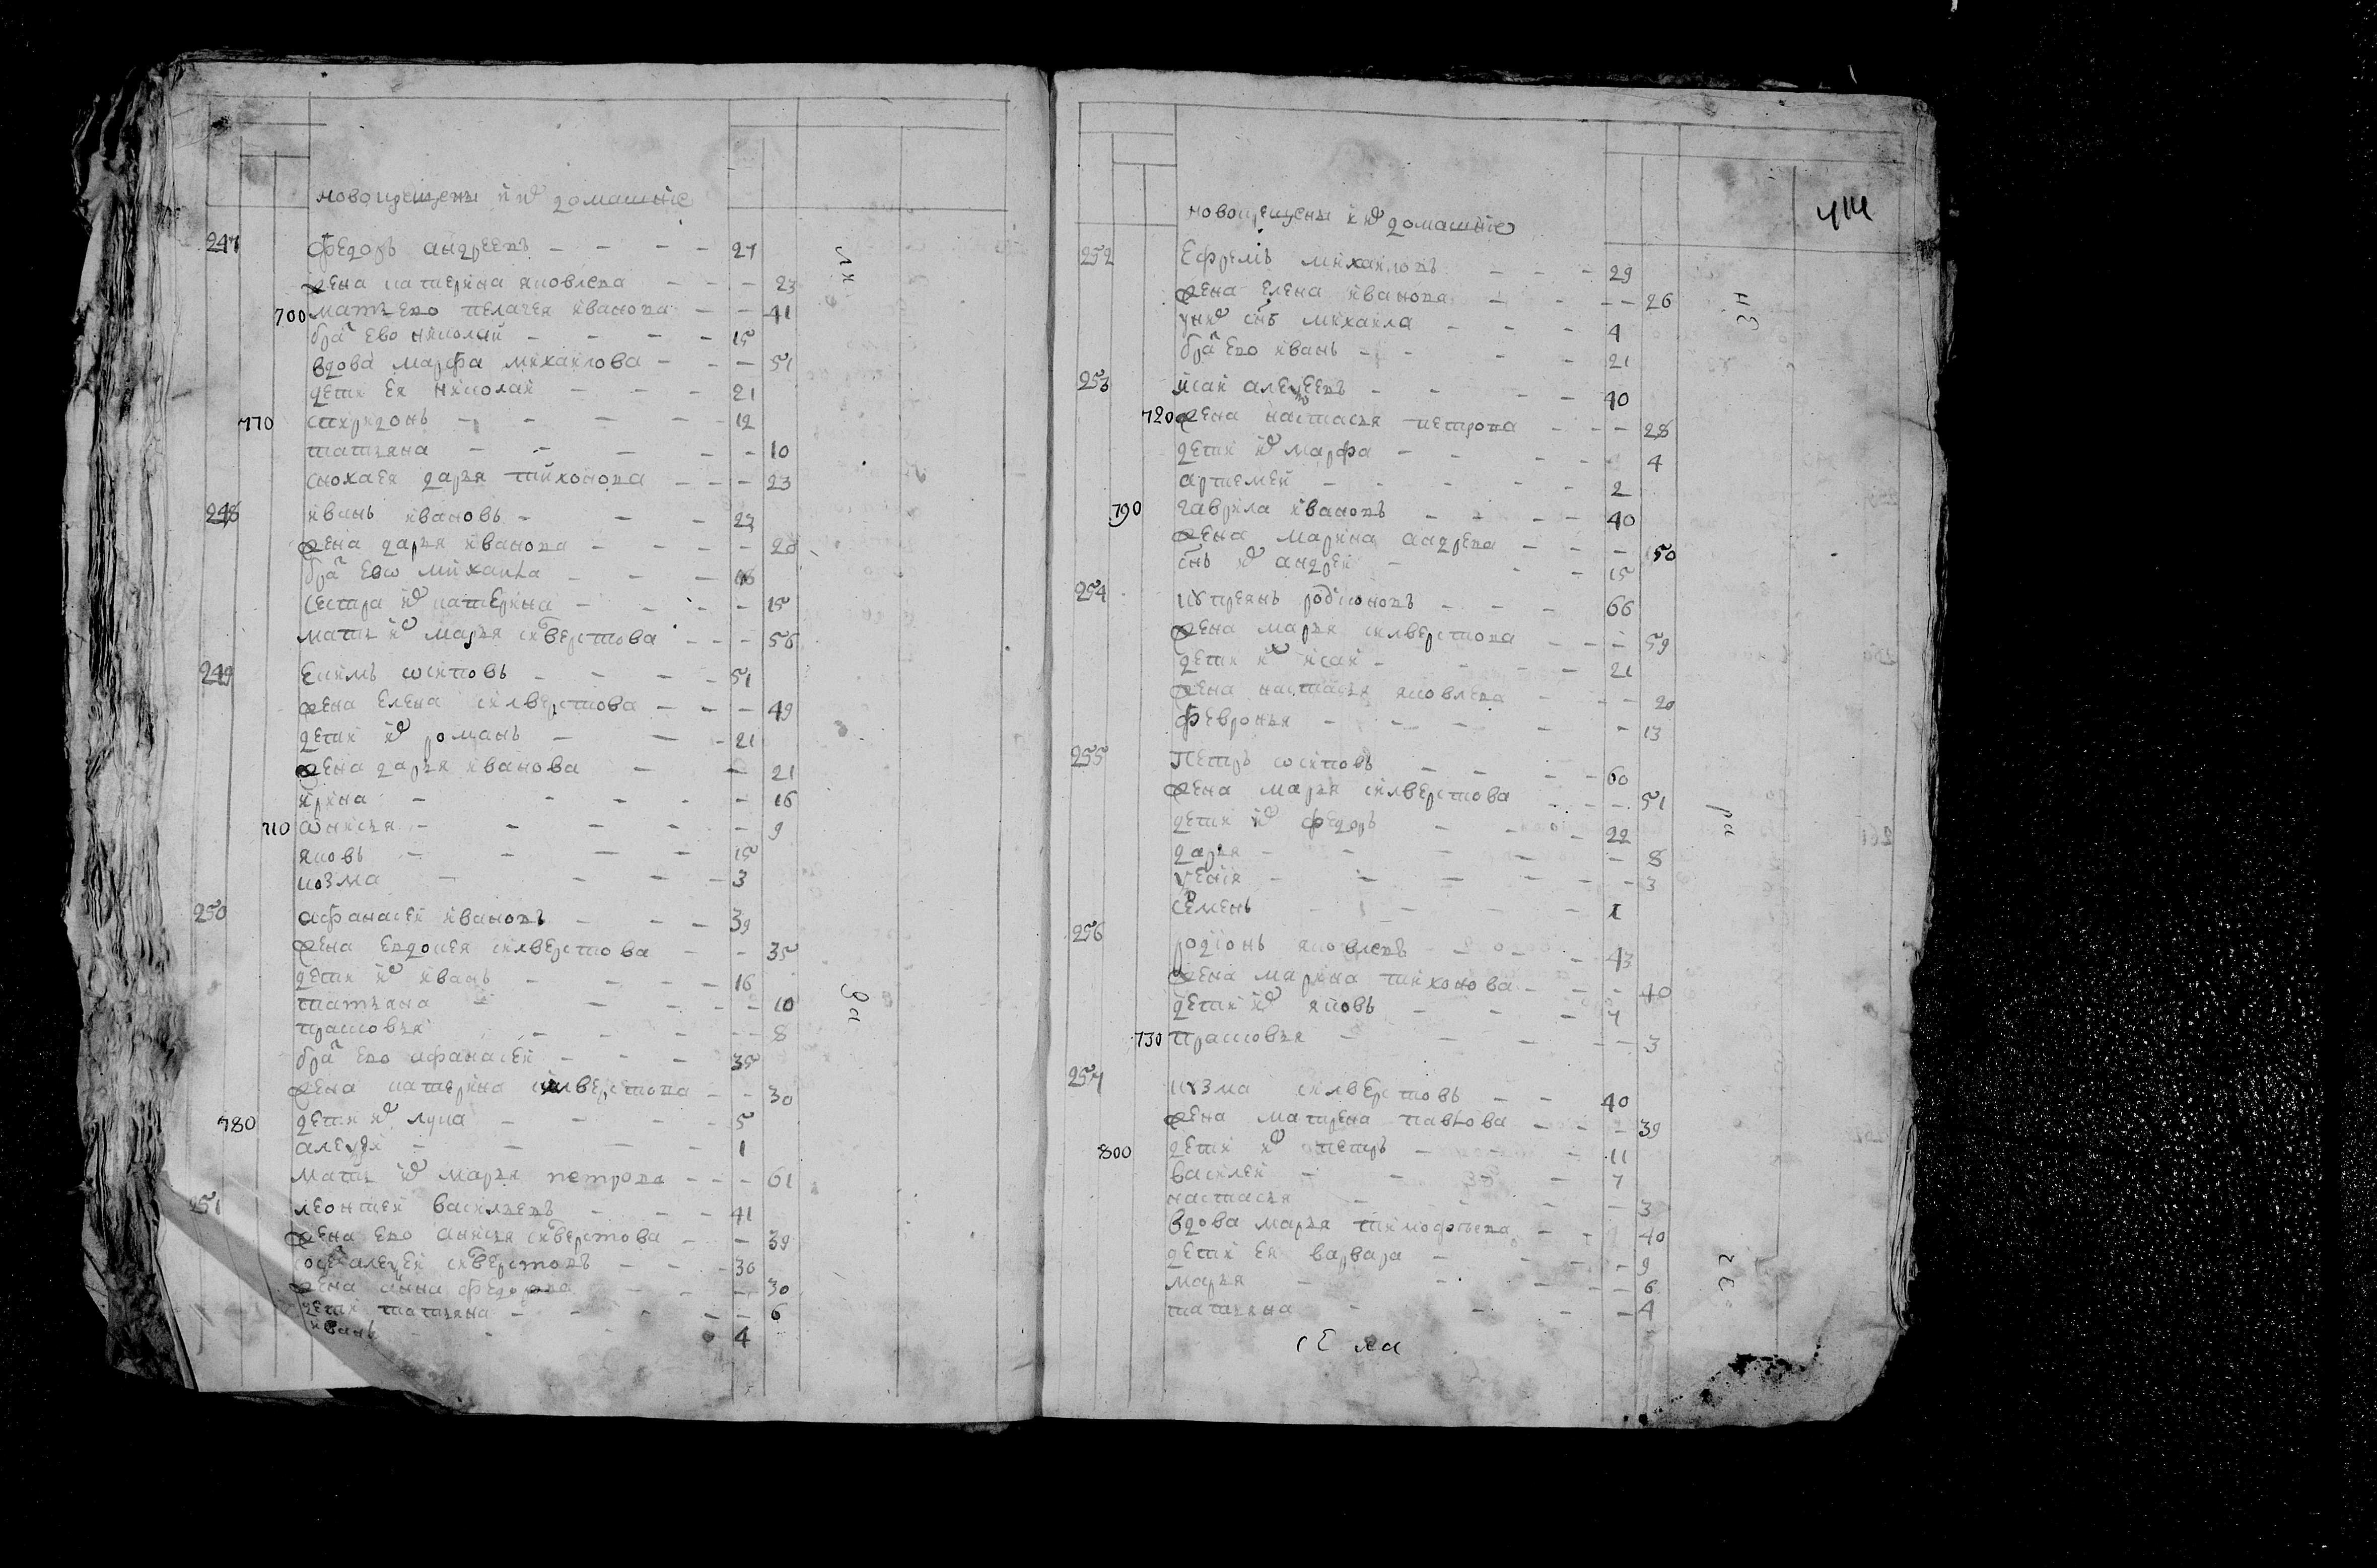 новокрещены и их домашние
247 Федоръ андреевъ 27
жена катерина яковлева 23
700 мать ево пелагея иванова 41
бра ево николай 15
вдова марфа михаилова 51
дети ея николай 21
770 спиридонъ 12
татьяна 10
сноха ея дарья тихонова 23
248 иванъ ивановъ 23
жена дарья иванова 20
бра ево михаила 16
сестра их катерина 15
мать их марья силверстова 56
249 Екимъ осиповъ 51
жена елена силверстова 49
дети их романъ 21
жена дарья иванова 21
ирина 16
710 анисья 9
яковъ 15
козма 3
250 афанасей ивановъ 39
жена евдокея силверстова 35
дети их иванъ 16
татьяна 10
прасковья 8
бра ево афанасей 35
жена катерина силверстова 30
780 дети их лука 5
алеѯей 1
мать их марья петрова 61
251 леонтей васильевъ 41
жена ево анисья силверстова 39
алеѯей силверстовъ 30
жена анна федорова 30
дети татьяна 6
иванъ 4
чти
новокрещены и их домашние
252 Ефремъ михаиловъ 29
жена елена иванова 26
у них снъ михаила 4
бра ево иванъ 21
253 исай алеѯеевъ 40
720 жена настасья петрова 28
дети их марфа 4
артемей 2
790 гаврила ивановъ 40
жена марина андреева 50
снъ их андрей 15
254 куприянъ родионовъ 66
жена марья силверстова 59
дети их исай 21
жена настасья яковлева 20
февронья 13
255 Петръ осиповъ 60
жена марья силверстова 51
дети их федоръ 22
дарья 8
ѯения 3
семенъ 1
256 родионъ яковлевъ 43
жена марина тихонова 40
дети их яковъ 7
730 прасковья 3
257 кузма силверстовъ 40
жена матрена павлова 39
800 дети их петръ 11
василей 7
настасья 3
вдова марья тимофеева 40
дети ея варвара 9
марья 6
татьяна 4
села